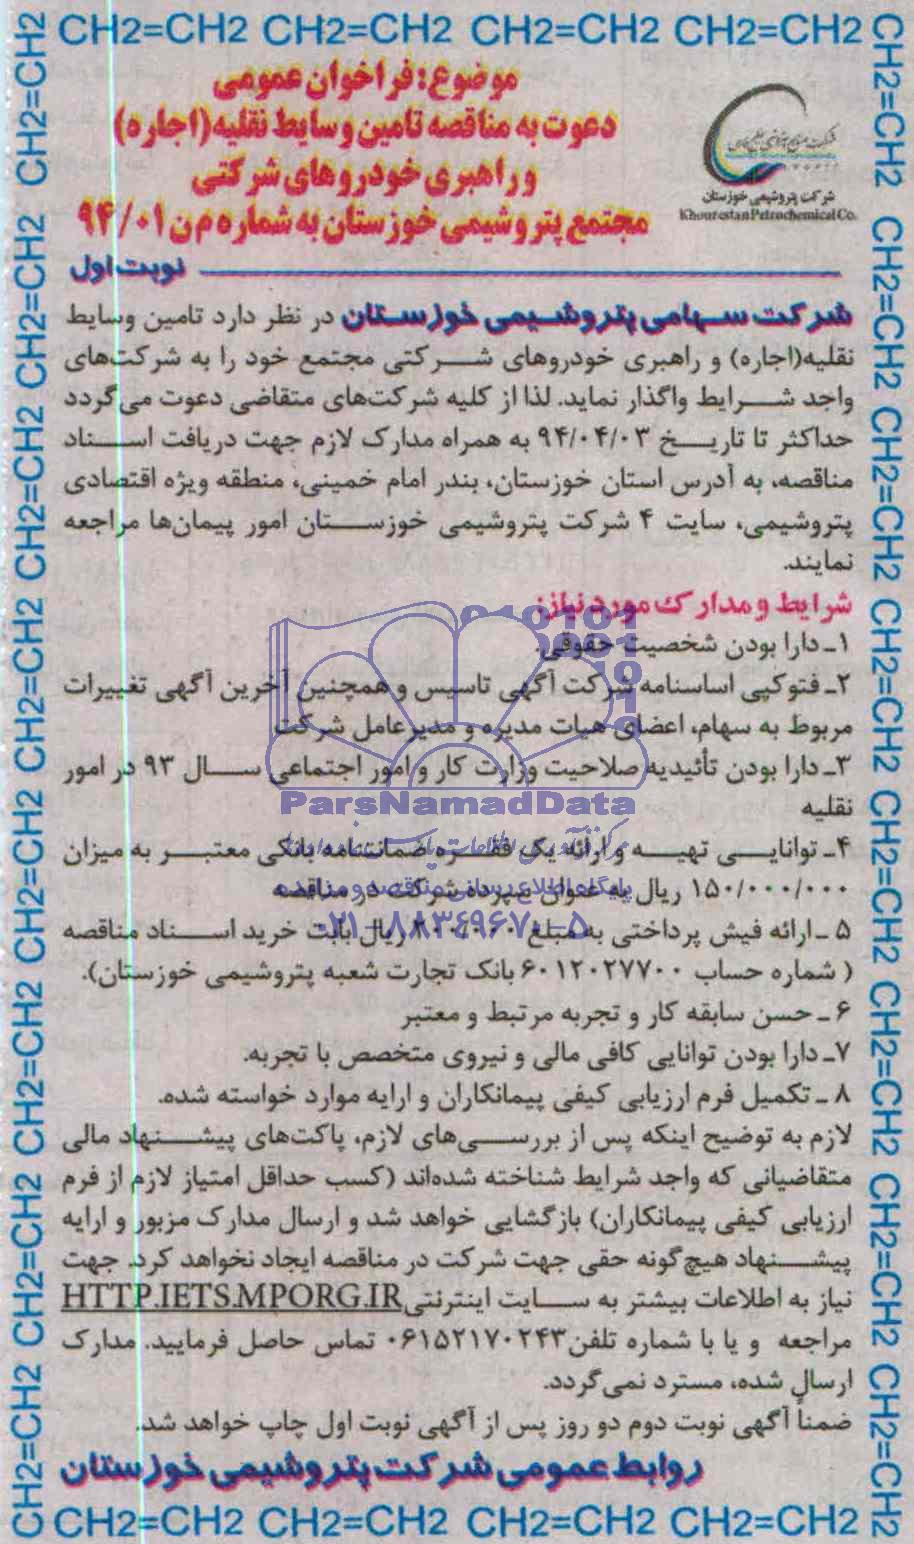 CH2=CH2 CH2=CH2 CH2=CH2 CH2=CH2
موضوع: فراخوان عمومی
دعوت به مناقصه تامین وسایط نقلیه(اجاره)
و راهبری خودروهای شرکتی
مجتمع پتروشیمی خوزستان به شماره م ن ۹۴/۰۱
شرکت پتروشیمی خوزستان
Khouzestan Petrochemical Co.
نوبت اول
شرکت سهامی پتروشیمی خوزستان در نظر دارد تامین وسایط
نقلیه(اجاره) و راهبری خودروهای شرکتی مجتمع خود را به شرکت‌های
واجد شرایط واگذار نماید. لذا از کلیه شرکت‌های متقاضی دعوت می‌گردد
حداکثر تا تاریخ ۹۴/۰۴/۰۳ به همراه مدارک لازم جهت دریافت اسناد
مناقصه، به آدرس استان خوزستان، بندر امام خمینی، منطقه ویژه اقتصادی
پتروشیمی، سایت ۴ شرکت پتروشیمی خوزستان امور پیمان‌ها مراجعه
نمایند.
شرایط و مدارک مورد نیاز:
۱ـ دارا بودن شخصیت حقوقی.
۲ـ فتوکپی اساسنامه شرکت آگهی تاسیس و همچنین آخرین آگهی تغییرات
مربوط به سهام، اعضای هیات مدیره و مدیرعامل شرکت
۳ـ دارا بودن تأئیدیه صلاحیت وزارت کار و امور اجتماعی سال ۹۳ در امور
نقلیه
ParsNamadData
۴ـ توانایی تهیه و ارائه یک فقره ضمانتنامه بانکی معتبر به میزان
۱۵۰/۰۰۰/۰۰۰ ریال به عنوان سپرده شرکت در مناقصه
پایگاه اطلاع رسانی مناقصه و مزایده
۰۲۱-۸۸۳۴۹۶۷۰-۵
۵ ـ ارائه فیش پرداختی به مبلغ ۳۰۰/۰۰۰ ریال بابت خرید اسناد مناقصه
( شماره حساب ۶۰۱۲۰۲۷۷۰۰ بانک تجارت شعبه پتروشیمی خوزستان).
۶ ـ حسن سابقه کار و تجربه مرتبط و معتبر
۷ـ دارا بودن توانایی کافی مالی و نیروی متخصص با تجربه.
۸ ـ تکمیل فرم ارزیابی کیفی پیمانکاران و ارایه موارد خواسته شده.
لازم به توضیح اینکه پس از بررسی‌های لازم، پاکت‌های پیشنهاد مالی
متقاضیانی که واجد شرایط شناخته شده‌اند (کسب حداقل امتیاز لازم از فرم
ارزیابی کیفی پیمانکاران) بازگشایی خواهد شد و ارسال مدارک مزبور و ارایه
پیشنهاد هیچ‌گونه حقی جهت شرکت در مناقصه ایجاد نخواهد کرد. جهت
نیاز به اطلاعات بیشتر به سایت اینترنتی HTTP.IETS.MPORG.IR
مراجعه و یا با شماره تلفن ۰۶۱۵۲۱۷۰۲۴۳ تماس حاصل فرمایید. مدارک
ارسال شده، مسترد نمی‌گردد.
ضمناً آگهی نوبت دوم دو روز پس از آگهی نوبت اول چاپ خواهد شد.
روابط عمومی شرکت پتروشیمی خوزستان
CH2=CH2 CH2=CH2 CH2=CH2 CH2=CH2